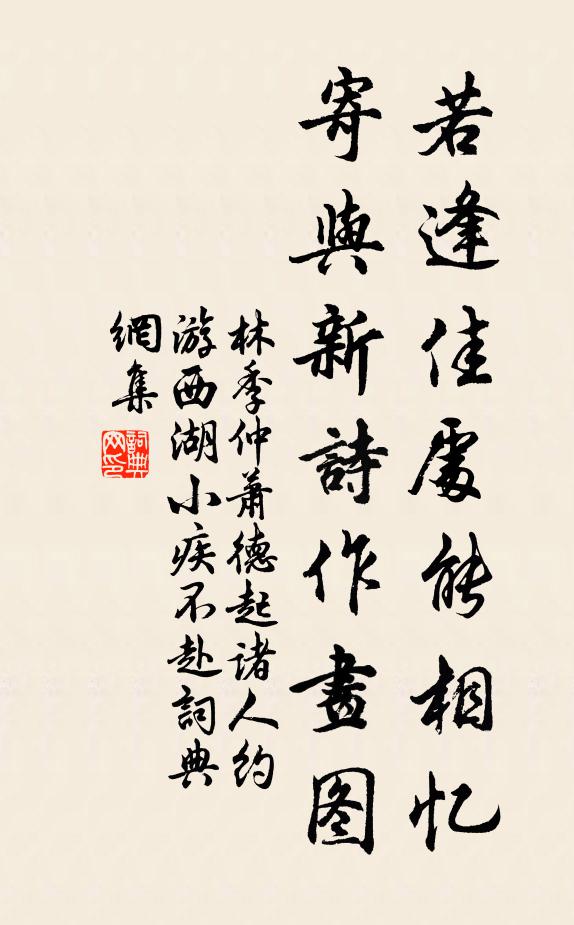 若逢佳處能相忆
寄與新詩作畫图
林季仲萧德起诸人约
游西湖小疾不赴詞典
網集
詞典
网印